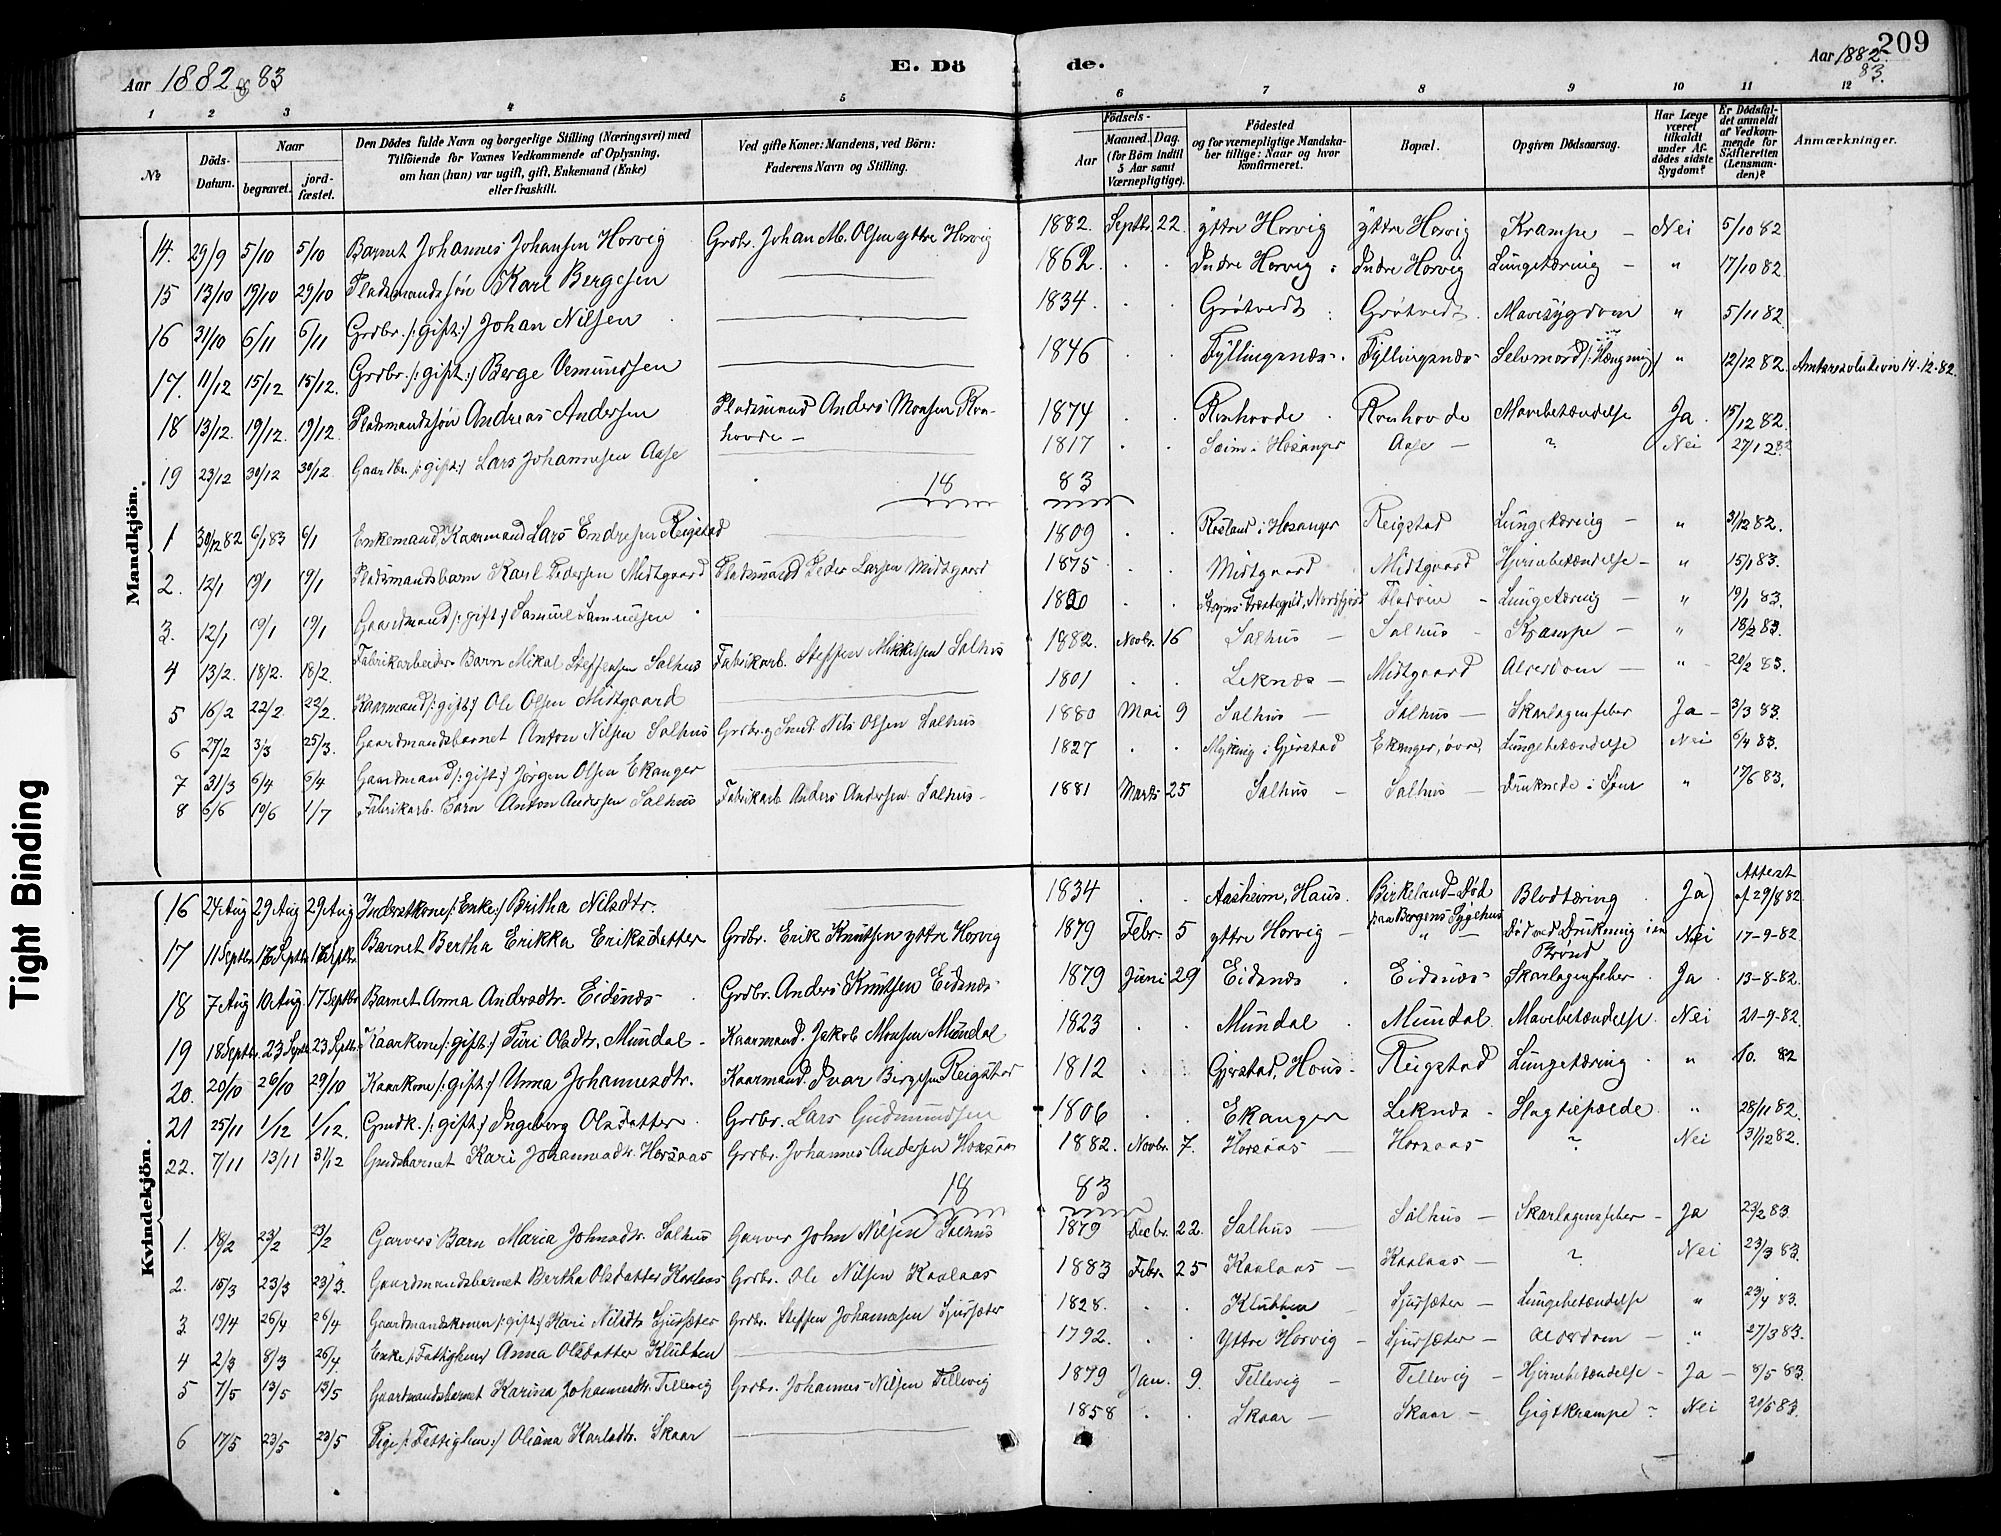 209
Aar 1882 & 83
E. Dö
de.
Aar 1882 83.
1 2 3 4 5 6 7 8 9 10 11 12
№
Döds-Datum.
Naar
begravet.
jord-fæstet.
Den Dödes fulde Navn og borgerlige Stilling (Næringsvei) med
Tilföiende for Voxnes Vedkommende af Oplysning,
om han (hun) var ugift, gift, Enkemand (Enke)
eller fraskilt.
Ved gifte Koner: Mandens, ved Börn:
Faderens Navn og Stilling.
Födsels-
Aar
Maaned. Dag.
(for Börn indtil
5 Aar samt
Værnepligtige).
Födested
og for værnepligtige Mandska-
ber tillige: Naar og hvor
konfirmeret.
Bopæl.
Opgiven Dödsaarsag.
Har Læge
været
tilkaldt
under Af-
dödes sidste
Sygdom?
Er Dödsfal-
det anmeldt
af Vedkom-
mende for
Skifteretten
(Lensman-
den)?
Anmærkninger.
Mandkjön.
14. 29/9 5/10 5/10 Barnet Johannes Johansen Horvig Grdbr. Johan M. Olsen yttre Horvig 1882. Septbr. 22. yttre Horvig yttre Horvig Krampe – Nei 5/10 82
15 13/10 19/10 29/10 Pladsmandssøn Karl Bergesen 1862. Indre Horvig Indre Horvig Lungetæring – " 17/10 82
16 31/10 6/11 6/11 Grdbr. /:gift:/ Johan Nilsen 1834. Grøtvedt Grøtvedt. Mavesygdom " 5/11 82
17. 11/12 15/12 15/12. Grdbr. /:gift:/ Berge Vemundsen 1846 Fyllingsnæs. Fyllingsnæs Selvmord /:Hængning/ " 12/12 82. Amtsresolution 14-12-82.
18 13/12. 19/12. 19/12. Pladsmandssøn Andreas Andersen Pladsmand Anders Monsen Ron-
hovde – 1874 Ronhovde Ronhovde Mavebetændelse Ja 15/12 82.
19 23/12 30/12 30/12. Gaardbr. /:gift:/ Lars Johannesen Aase 1817 Seim i Hosanger Aase – ? Nei 27/12 82
18 83
1 30/12 82 6/1 83 6/1 Enkemand, Kaarmand Lars Endresen Reigstad 1809 Rosland i Hosanger Reigstad Lungetæring – " 31/12 82.
2. 12/1 19/1 19/1 Pladsmandsbarn Karl Pedersen Midtgaard Pladsmand Peder Larsen Midtgaard 1875 Midtgaard Midtgaard Hjernebetændelse – " 15/1 83.
3. 12/1 19/1 19/1 Gaardmand /:gift:/ Samuel Samuelsen Lungetæring – " 19/1 83.
4 13/2. 18/2. 18/2. Fabrikarbeider Barn Mikal Steffensen Salhus Fabrikarb. Steffen Mikkelsen Salhus 1882. Novbr. 16 Salhus – Salhus – Krampe – " 18/2 83.
5 16/2 22/2. 22/2. Kaarmand /:gift:/ Ole Olsen Midtgaard 1801 Leknæs – Midtgaard Alderdom – " 20/2 83.
6 27/2 3/3 25/3. Gaardmandsbarnet Anton Nilsen Salhus Grdbr. og Smed Nils Olsen Salhus 1880 Mai 9 Salhus – Salhus – Skarlagensfeber Ja – 3/3 83.
7 31/3 6/4 6/4 Gaardmand /:gift:/ Jørgen Olsen Ekanger 1827 Myking i Gjerstad Ekanger, øvre Lungebetændelse Nei 6/4 83.
8 6/6 19/6 1/7 Fabrikarb. Barn Anton Andersen Salhus Fabrikarb. Anders Andersen Salhus – 1881 Marts 25 Salhus – Salhus – Druknede i Søen " 17/6 83.
Kvindekjön.
16 24 Aug 29 Aug 29 Aug Inderstkone /:Enke:/ Britha Nilsdtr. 1834 Aasheim, Haus. Birkeland – Død
paa Bergens Sygehus Blodtæring Ja Attest af 29/8 82
17 11 Septbr. 16 Septbr 16 Septbr. Barnet Bertha Erikka Eriksdatter Grdbr. Erik Knutsen yttre Horvig 1879 Febr. 5 yttre Horvig – " – Død ved Drukning i en
Brønd Nei 17-9-82.
18 7 Aug 10 Aug. 17 Septbr Barnet Anna Andersdtr. Eidsnæs Grdbr. Anders Knutsen Eidsnæs 1879 Juni 29 Eidsnæs Eidsnæs – Skarlagensfeber Ja 13-8-82.
19 18 Septbr. 23 Septbr. 23 Septbr. Kaarkone /:gift:/ Turi Olsdtr. Mundal – Kaarmand. Jakob Monsen Mundal 1823 Mundal Mundal. Mavebetændelse. Nei 21-9-82.
20. 20/10 26/10 29/10 Kaarkone /:gift:/ Anna Johannesdtr. Kaarmand. Ivar Birgesen Reigstad 1812 Gjerstad, Hous. Reigstad Lungetæring " 82
21 25/11 1/12 1/12. Grndk. /:gift:/ Ingeborg Olsdatter Grdbr. Lars Gudmundsen 1806 Ekanger Leknæs – Slagtilfælde. " 28/11 82.
22. 7/11 13/11 31/12 Grndsbarnet Kari Johannesdtr. Horsaas Grdbr. Johannes Andersen Horsaas 1882. Novbr. 7. Horsaas – Horsaas ? Nei 31/12 82.
18 83
1. 18/2 23/2 23/2 Garvers Barn Maria Johnsdtr. Salhus Garver John Nilsen Salhus 1879 Decbr. 22. Salhus – Salhus – Skarlagensfeber – Ja 23/2 83.
2. 15/3 23/3 23/3. Gaardmandsbarnet Bertha Olsdatter Kaalaas Grdbr. Ole Nilsen Kaalaas 1883 Febr. 25 Kaalaas – Kaalaas – ? Nei 23/3 83.
3. 19/4 26/4 26/4 Gaardmandskonen /:gift:/ Kari Nilsdtr. Sjursæter Grdbr. Steffen Johannesen Sjursæter 1828. Klubben – Sjursæter – Lungebetændelse " 23/4 83.
4 2/3 8/3 26/4 Enke /:Fattiglem/ Anna Olsdatter Klubben 1792. Yttre Horvig – Sjursæter – Alderdom – " 27/3 83.
5 7/5 13/5 13/5 Gaardmandsbarnet Karina Johannesdtr. Tellevig Grdbr. Johannes Nilsen Tellevig 1879 Jan. 9. Tellevig – Tellevig – Hjernebetændelse – Ja – 8/5 83.
6 17/5 23/5 23/5 Pige /:Fattiglem:/ Oliana Karlsdtr. Skaar 1858 Skaar – Skaar – Gigtkrampe ? Nei 20/5 83.
Tight Binding